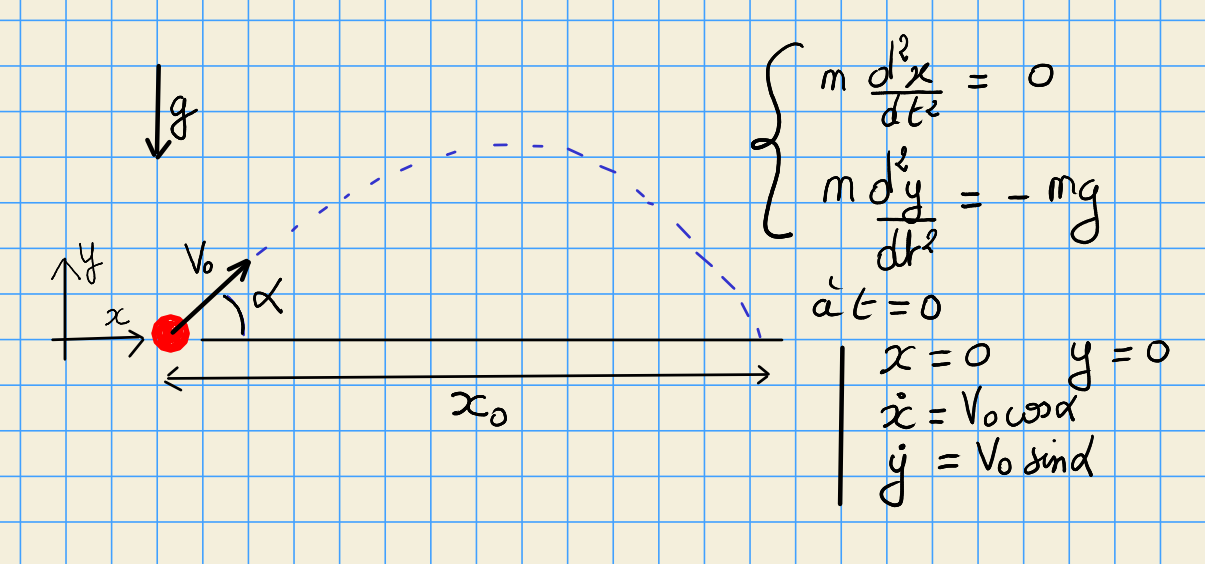 g
y
V₀
α
x
x₀
m d²x/dt² = 0
m d²y/dt² = - mg
à t = 0
x = 0 y = 0
ẋ = V₀ cosα
ẏ = V₀ sinα